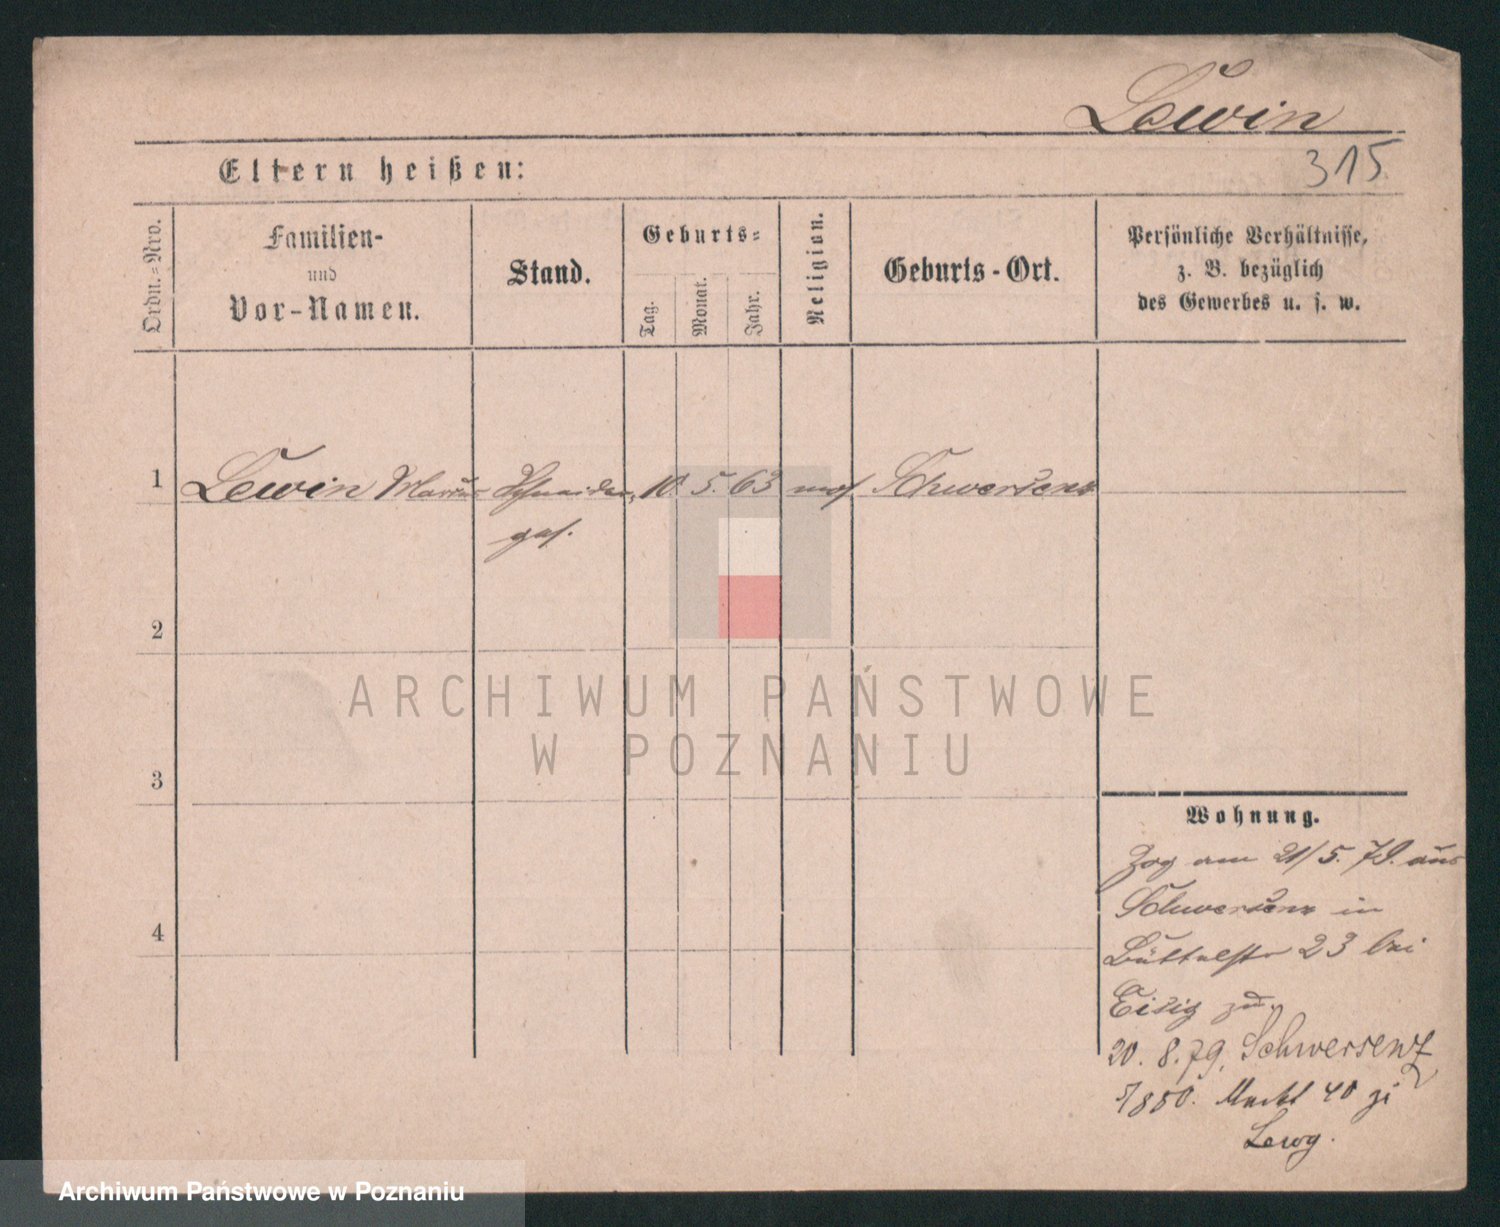 Lewin
315
Eltern heißen:
Ordn.=Nro.
Familien-
und
Vor-Namen.
Stand.
Geburts=
Tag.
Monat.
Jahr.
Religion.
Geburts-Ort.
Persönliche Verhältnisse,
z. B. bezüglich
des Gewerbes u. s. w.
1
Lewin Schneider 10. 5. 63 mos. Schwersenz
2
ARCHIWUM PAŃSTWOWE
W POZNANIU
3
4
Wohnung.
Zog am 21/5. 79. aus
Schwersenz in
Büttelstr 23 bei
Eisig zu.
20. 8. 79. Schwersenz
Markt 40
Archiwum Państwowe w Poznaniu